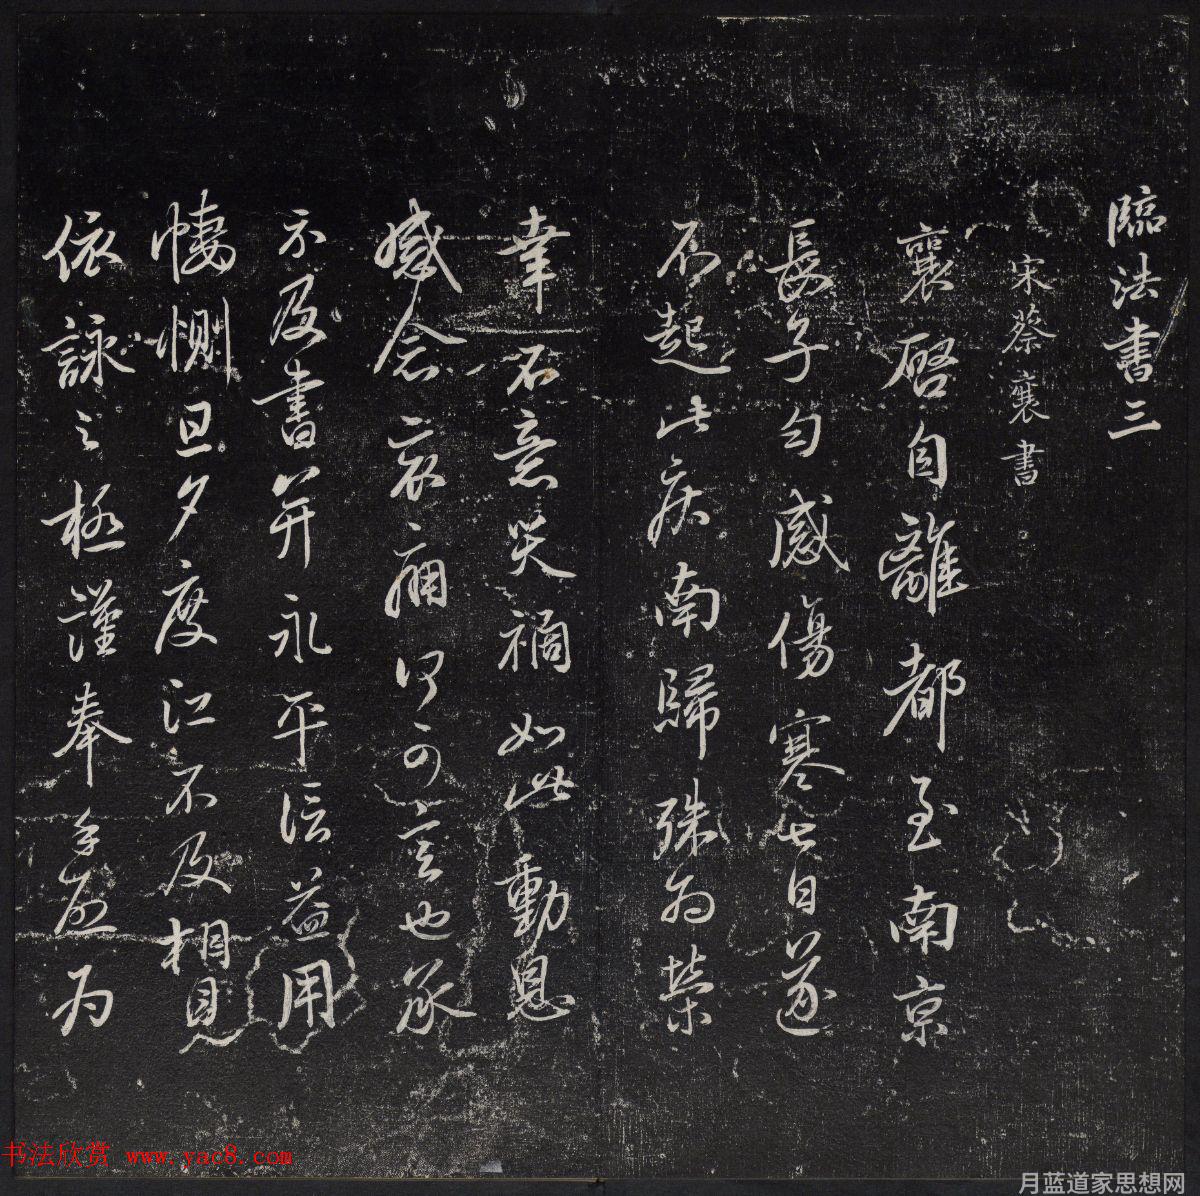 臨法書三
宋蔡襄書
襄啓自離都至南京
長子勻感傷寒七日遂
不起此疾南歸殊為榮
幸不意災禍如此動息
感念哀痛何可言也承
示及書并永平信益用
悽惻旦夕度江不及相見
依詠之極謹奉手啓為
书法欣赏 www.yac8.com
月蓝道家思想网